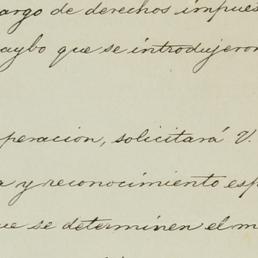 argo de derechos impues
aybo que se introdujeron
peracion, solicitará V.
a y reconocimiento esp
ue se determinen el m